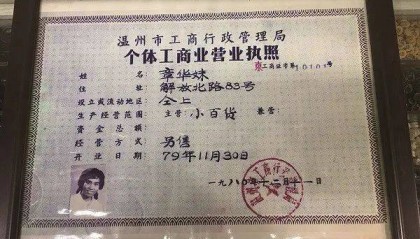 温州市工商行政管理局
个体工商业营业执照
工商业字第10101号
姓名 章华妹
住址 解放北路83号
设立或流动地区 仝上
生产经营范围 主营：小百货 兼营：
资金总额
经营方式 另售
开业日期 79年11月30日
一九八〇年十二月十一日